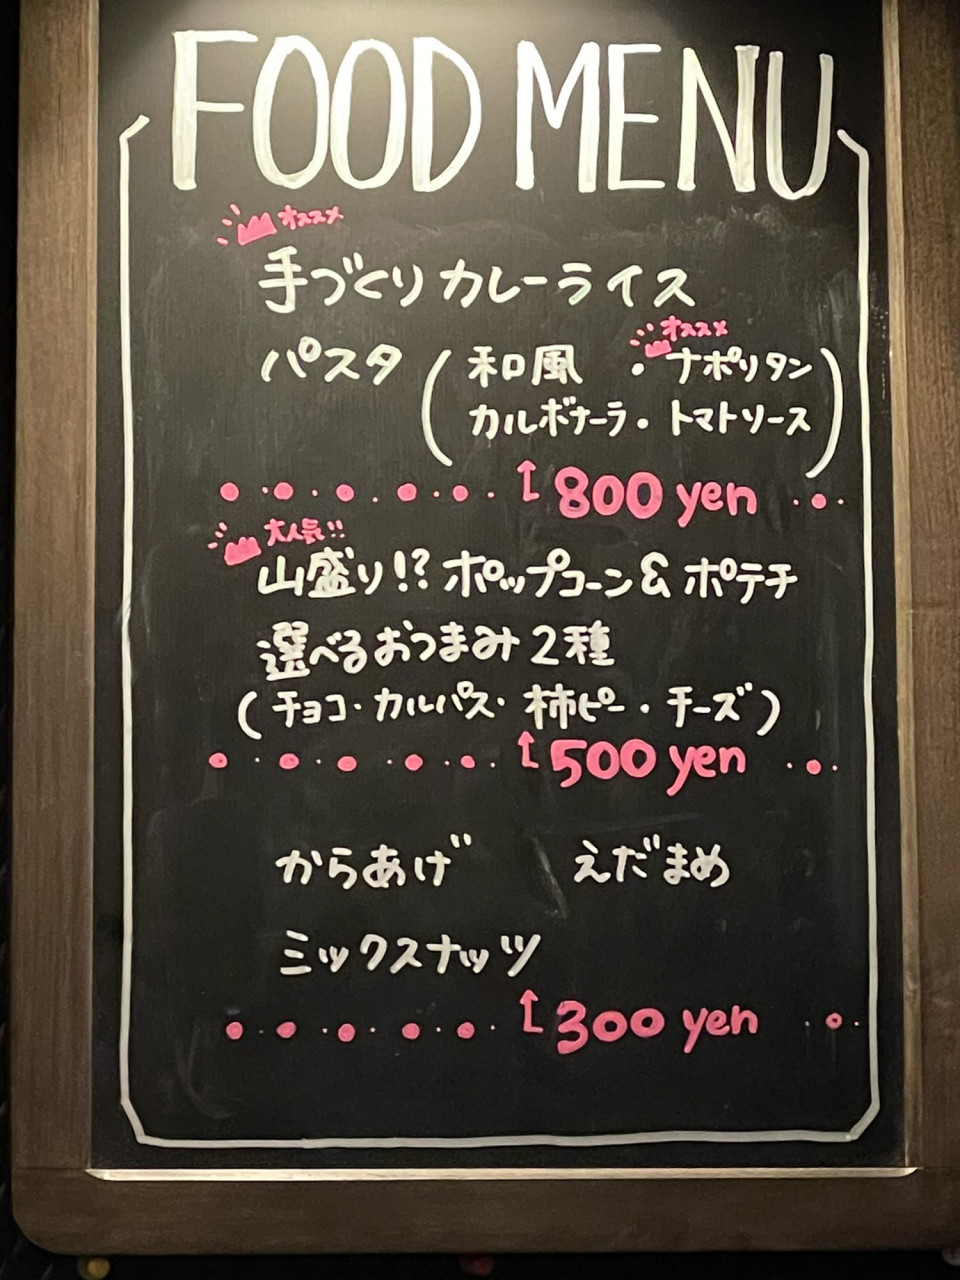 FOOD MENU
オススメ
手づくりカレーライス
オススメ
パスタ(和風・ナポリタン
カルボナーラ・トマトソース)
↑800 yen
大人気!!
山盛り!?ポップコーン&ポテチ
選べるおつまみ2種
(チョコ・カルパス・柿ピー・チーズ)
↑500 yen
からあげ えだまめ
ミックスナッツ
↑300 yen